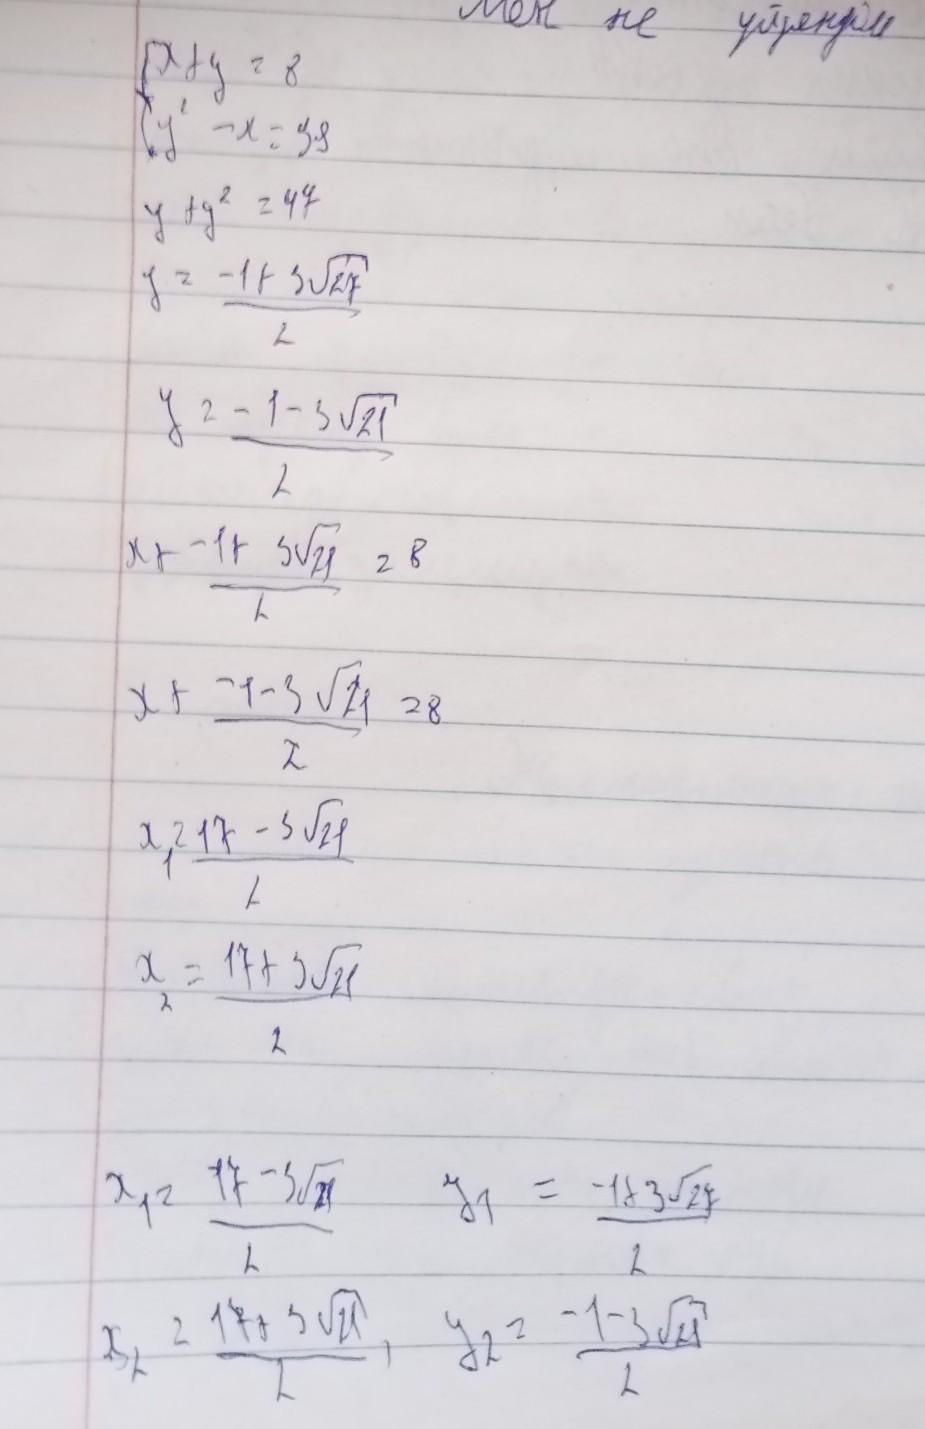 Мен не үйрендім
{x+y=8
{y² -x=39
y+y²=47
y= (-1+3√27)/2
y=(-1-3√21)/2
x+(-1+3√21)/2=8
x+(-1-3√21)/2=8
x₁=(17-3√21)/2
x₂=(17+3√21)/2
x₁=(17-3√21)/2 y₁=(-1+3√27)/2
x₂=(17+3√21)/2, y₂=(-1-3√21)/2